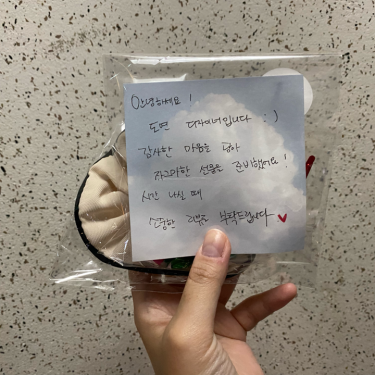 안녕하세요!
도면 디자이너입니다 :)
감사한 마음을 담아
자그마한 선물을 준비했어요!
시간 나실 때
소중한 리뷰 부탁드립니다 ♥